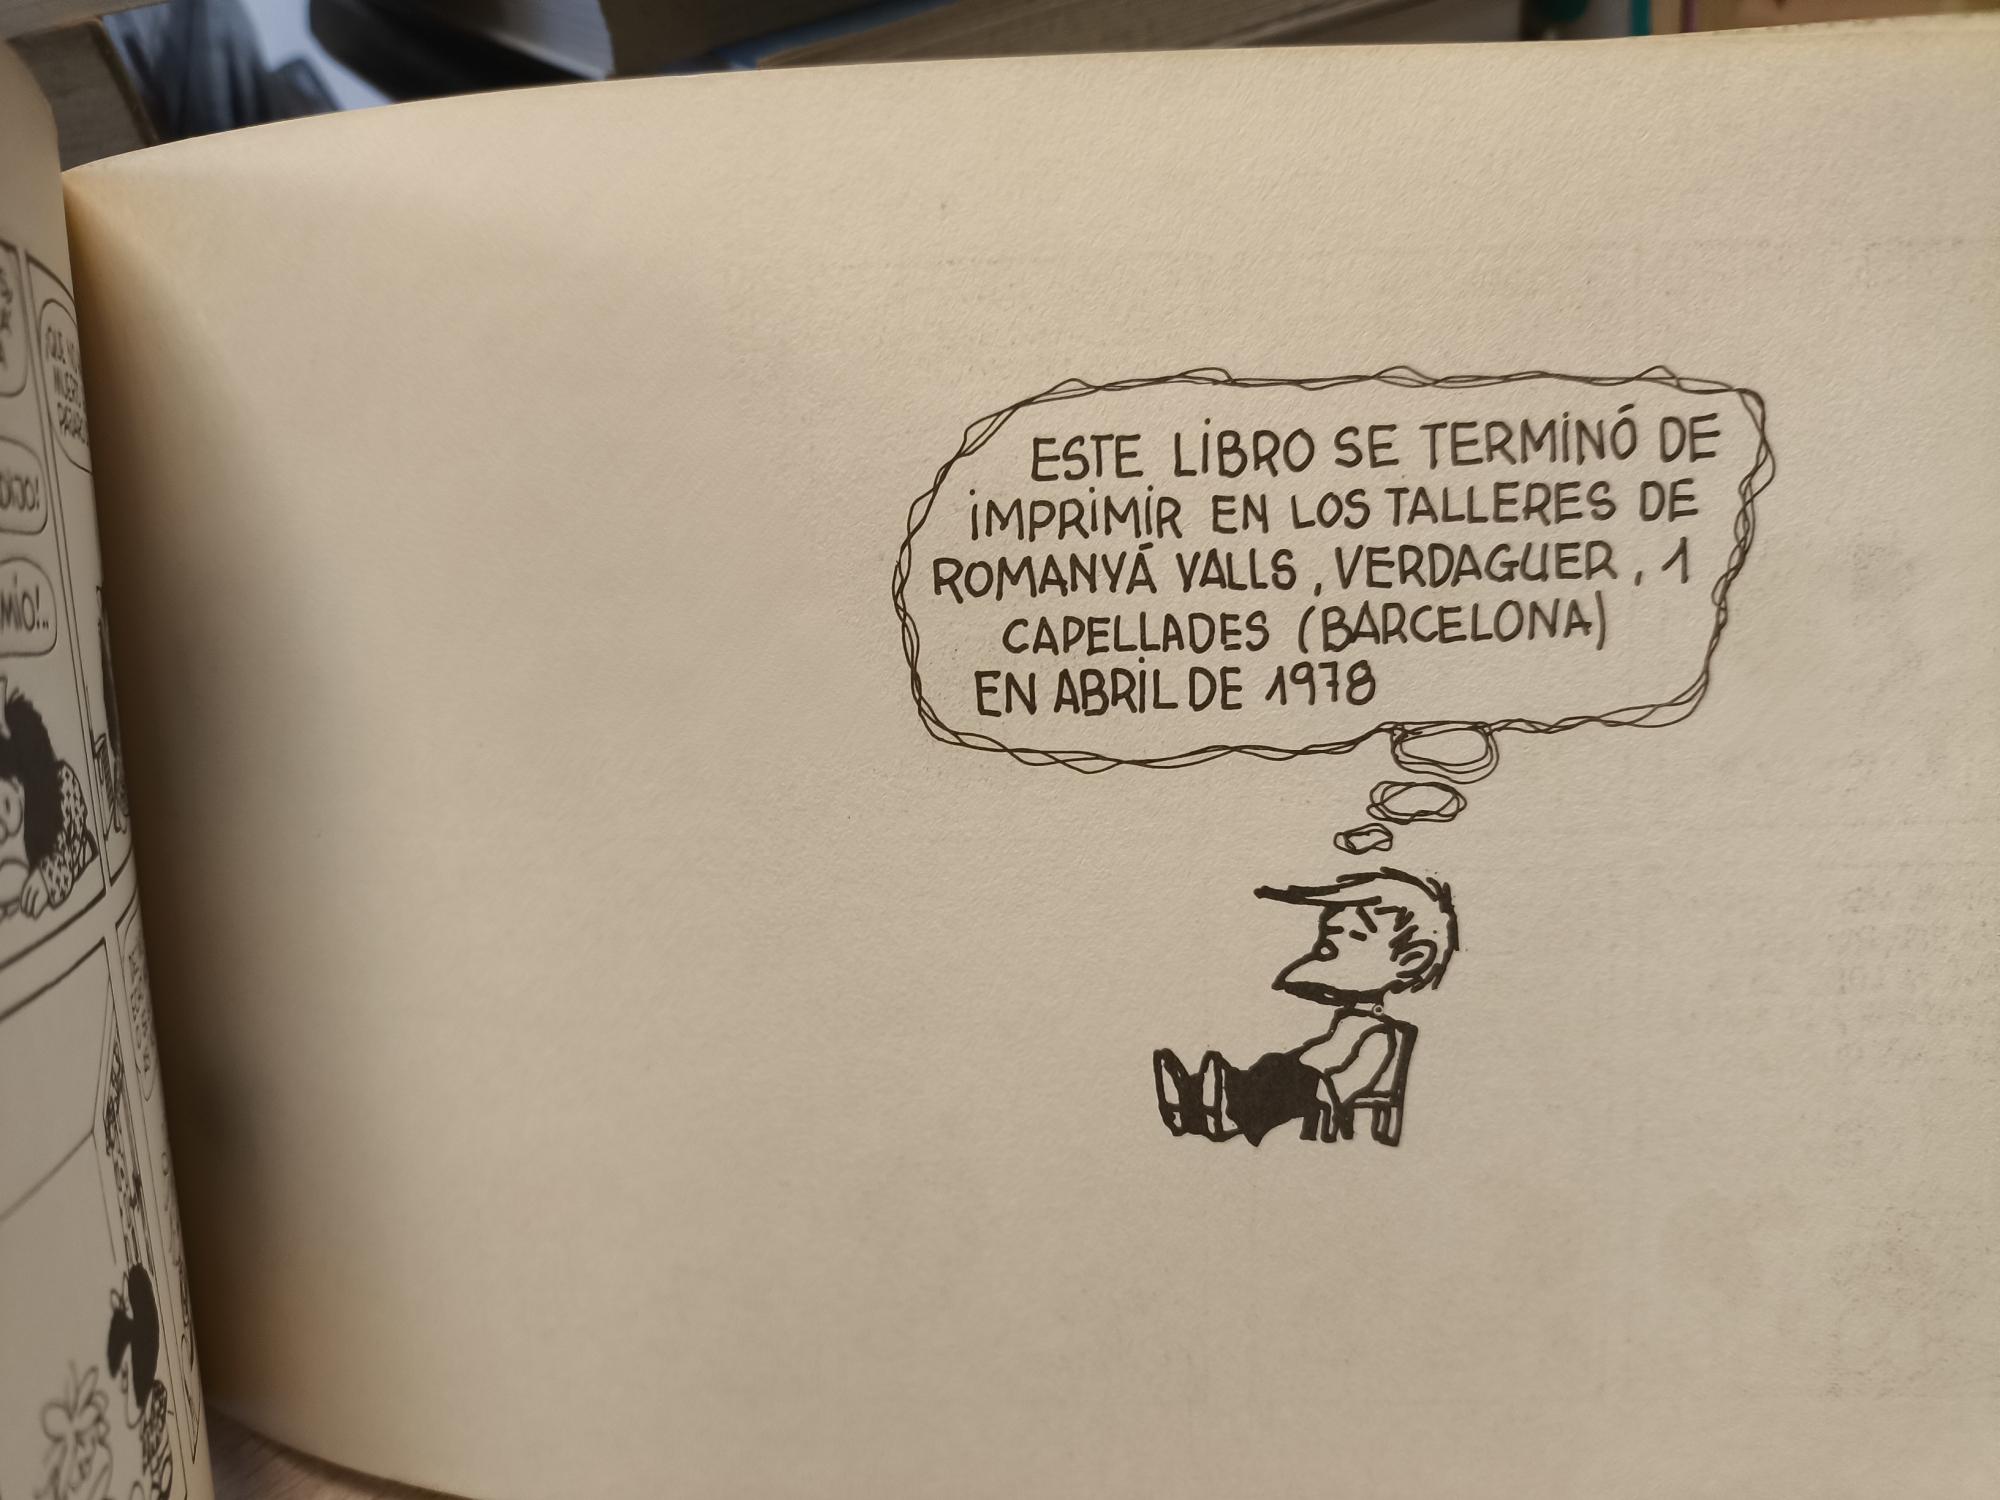 ¡QUE NO
MUERTO
PAJARO
DIJO!
MÍO!..
ESTE LIBRO SE TERMINÓ DE
IMPRIMIR EN LOS TALLERES DE
ROMANYÁ VALLS, VERDAGUER, 1
CAPELLADES (BARCELONA)
EN ABRIL DE 1978